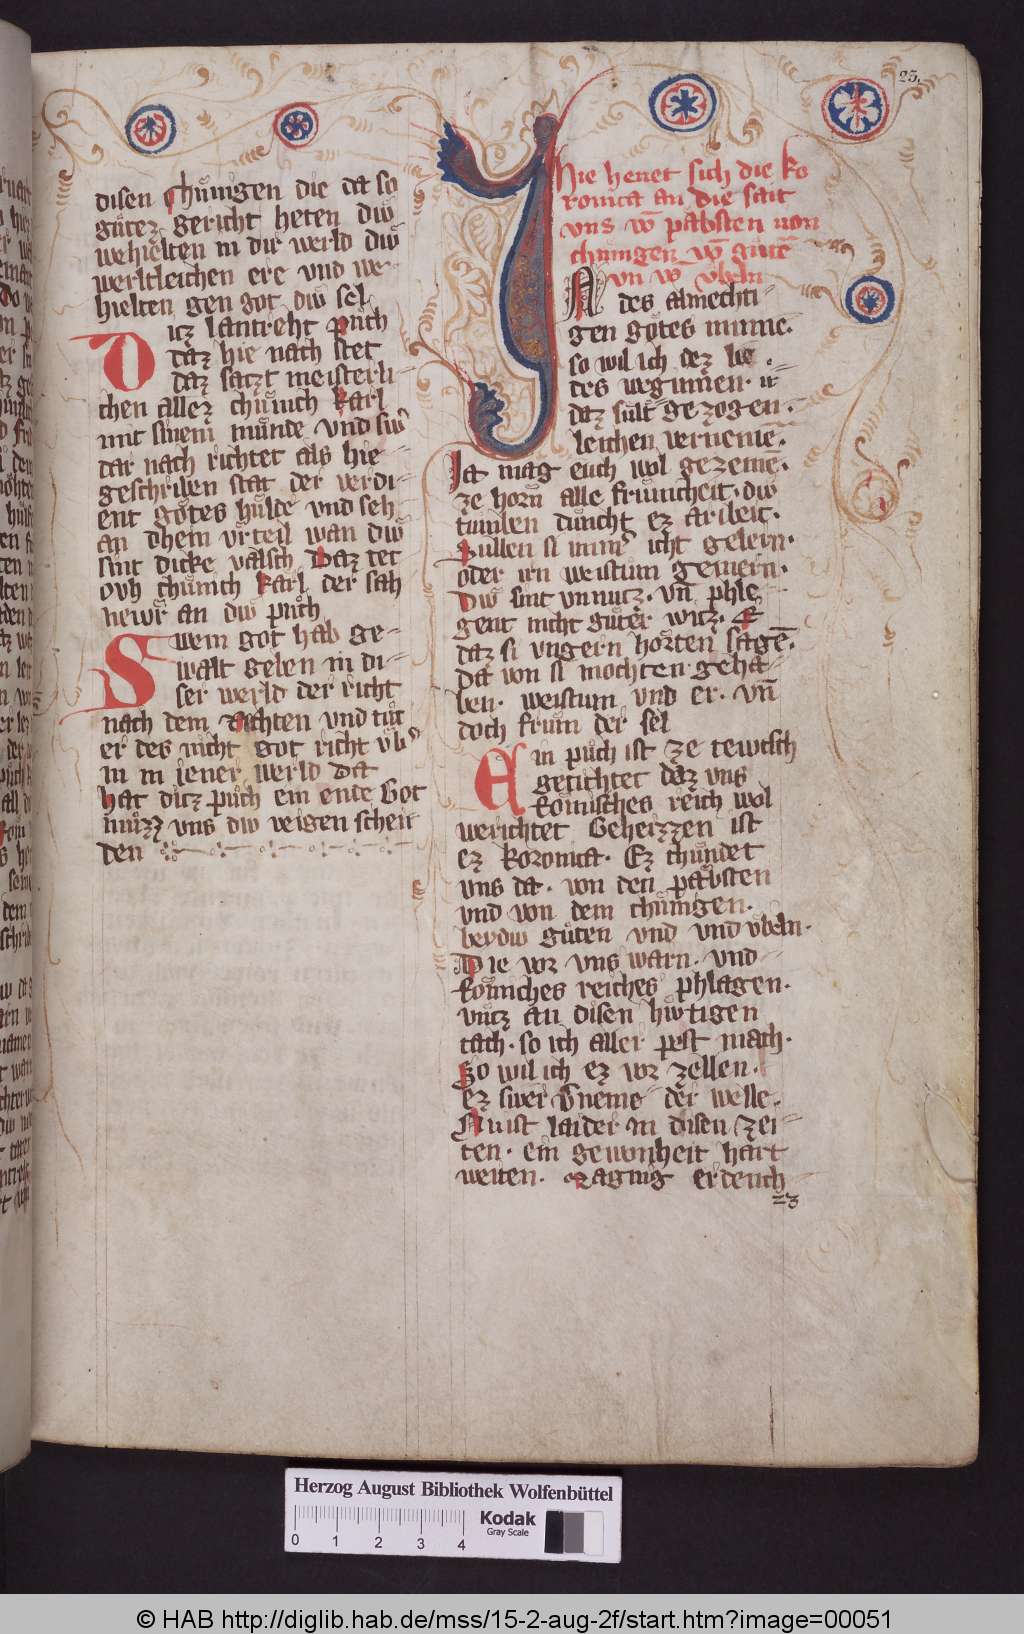 23.
disen chuͤnigen die da so
guͤtez gericht heten diw
wehielten in dir werld diw
werltleichen ere vnd we-
hielten gen got diw sel
Ditz lantreht puͤch
daz hie nach stet
daz satzt meisterli-
chen allez chuͤnich karl
mit sinem munde vnd sin
dar nach richtet als hie
geschriben stat der verdi-
ent gotes hulde vnd seh
an dhein vrteil wan diw
sint dicke valsch Daz tet
ovh chuͤnich karl der sah
newr an diw puͤch
Swem got hab ge-
walt geben in di-
ser werld der richt
nach dem rechten vnd tuͤt
er des nicht got richt vber
in in iener werld Da
hat ditz puͤch ein ende Got
muͤzz vns diw veigen scheit
den
Hie hevet sich die ko
ronica an die sait
vns von pabsten von
chuͤnigen von guten
vn von vbeln
IN des almechti-
gen gotes minne.
so wil ich dez lie
des weginnen. ir
daz sult gezogen-
leichen vernemen.
Ia mag euch wol gezemen.
ze horn alle frumicheit. diw
tumben duncht ez aribeit.
Sullen si immer icht gelern.
oder irn weistum gemern.
Diw sint vnnutz. vn phle-
gent nicht guter witz. E
daz si vngern horten sagen.
Da von si mochten geha-
ben. weistum vnd er. vn
doch frum der sel
Ein puͤch ist ze tewtsch
getichtet daz vns
Romisches reich wol
werichtet Geheizzen ist
ez koronica. Ez chundet
vns da. von den pabsten
vnd von dem chuͤnigen.
beydiw guͤten vnd vnd vbeln.
Die vor vns warn. vnd
Romiches reiches phlagen.
vntz an disen hiwtigen
tach. so ich aller pest mach.
So wil ich ez vor zellen.
ez swer verneme der welle.
Nu ist laider in disen zei-
ten. ein gewonheit hart
weiten. Manig erdench
23
Herzog August Bibliothek Wolfenbüttel
Kodak
Gray Scale
0 1 2 3 4
© HAB http://diglib.hab.de/mss/15-2-aug-2f/start.htm?image=00051